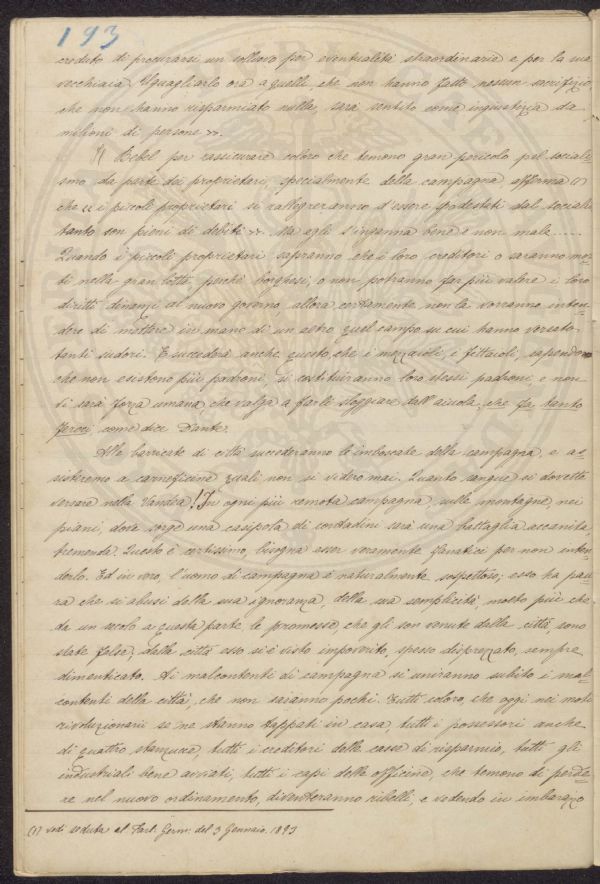 193
creduto di procurarsi un sollievo per eventualità straordinarie e per la sua
vecchiaia. Uguagliarlo ora a quelli, che non hanno fatto nessun sacrifizio,
che non hanno risparmiato nulla, sarà sentito come ingiustizia da
milioni di persone ».
Il Bebel per rassicurare coloro che temono gran pericolo pel sociali
smo da parte dei proprietari, specialmente della campagna afferma (1)
che « i piccoli proprietari si rallegreranno d'essere spodestati dal sociali
tanto son pieni di debiti ». Ma egli s'inganna bene e non male.....
Quando i piccoli proprietari sapranno che i loro creditori o saranno mor
ti nella gran lotta, perchè borghesi, o non potranno far più valere i loro
diritti dinanzi al nuovo governo, allora certamente non la vorranno inten=
dere di mettere in mano di un altro quel campo su cui hanno versato
tanti sudori. E succederà anche questo, che i mezzaioli, e fittaioli, sapendo
che non esistono più padroni, si costituiranno loro stessi padroni, e non
vi sarà forza umana, che valga a farli sloggiare dall'aiuola, che fa tanto
feroci come dice Dante.
Alle barricate di città succederanno le imboscate della campagna, e as=
sisteremo a carneficine quali non si videro mai. Quanto sangue si dovette
versare nella Vandea! In ogni più remota campagna, sulle montagne, nei
piani, dove sorge una casipola di contadini sarà una battaglia accanita
tremenda. Questo è certissimo, bisogna esser veramente fanatici per non inten=
derlo. Ed in vero, l'uomo di campagna è naturalmente sospettoso; esso ha pau
ra che si abusi della sua ignoranza, della sua semplicità, molto più che
da un secolo a questa parte le promesse, che gli son venute dalla città, sono
state false; dalla città esso si è visto impoverito, spesso disprezzato, sempre
dimenticato. Ai malcontenti di campagna si uniranno subito i mal=
contenti della città, che non saranno pochi. Tutti coloro, che oggi nei moti
rivoluzionarii se ne stanno tappati in casa, tutti i possessori anche
di quattro stanzucce, tutti i creditori delle casse di risparmio, tutti gli
industriali bene avviati, tutti i capi delle officine, che temono di perde=
re nel nuovo ordinamento, diventeranno ribelli, e vedendo in imbarazzo
(1) Vedi seduta al Parl. Germ. del 3 Gennaio 1893